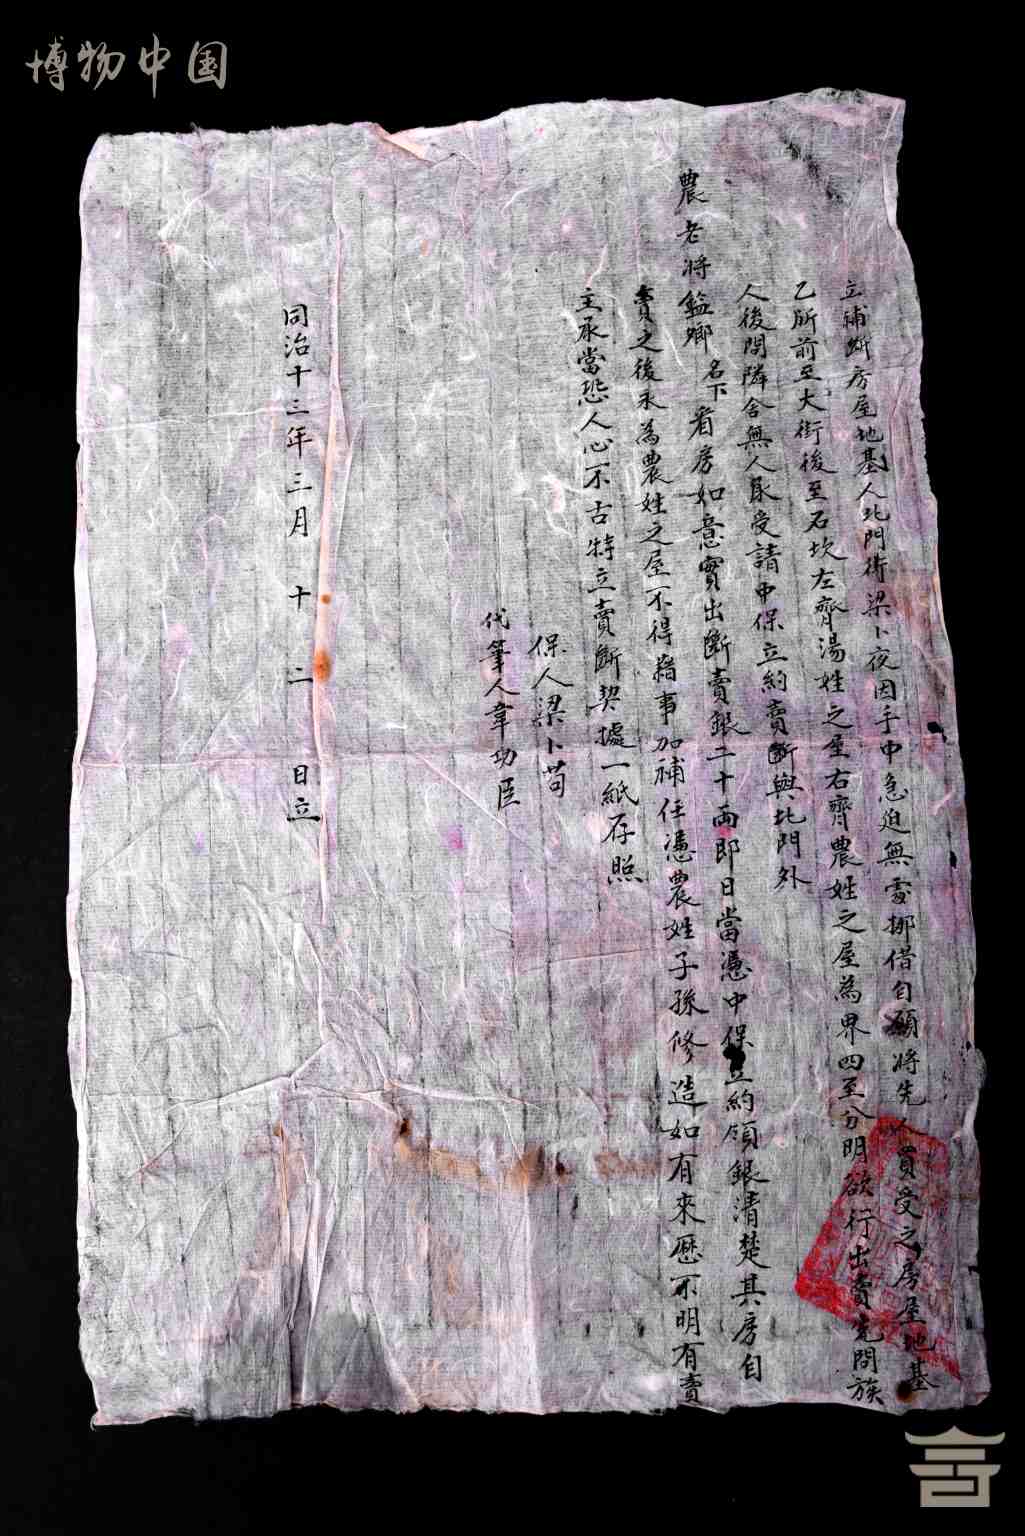 博物中国
立補斷房屋地基人北門街梁卜夜因手中急迫無處挪借自願將先人買受之房屋地基
乙所前至大街後至石坎左齊湯姓之屋右齊農姓之屋為界四至分明欲行出賣先問族
人後問隣舍無人承受請中保立約賣斷與北門外
農老將鎰卿名下看房如意實出斷賣銀二十両即日當憑中保立約領銀清楚其房自
賣之後永為農姓之屋不得藉事加補任憑農姓子孫修造如有來歷不明有賣
主承當恐人心不古特立賣斷契據一紙存照
保人梁卜苟
代筆人韋功臣
同治十三年三月十二日立